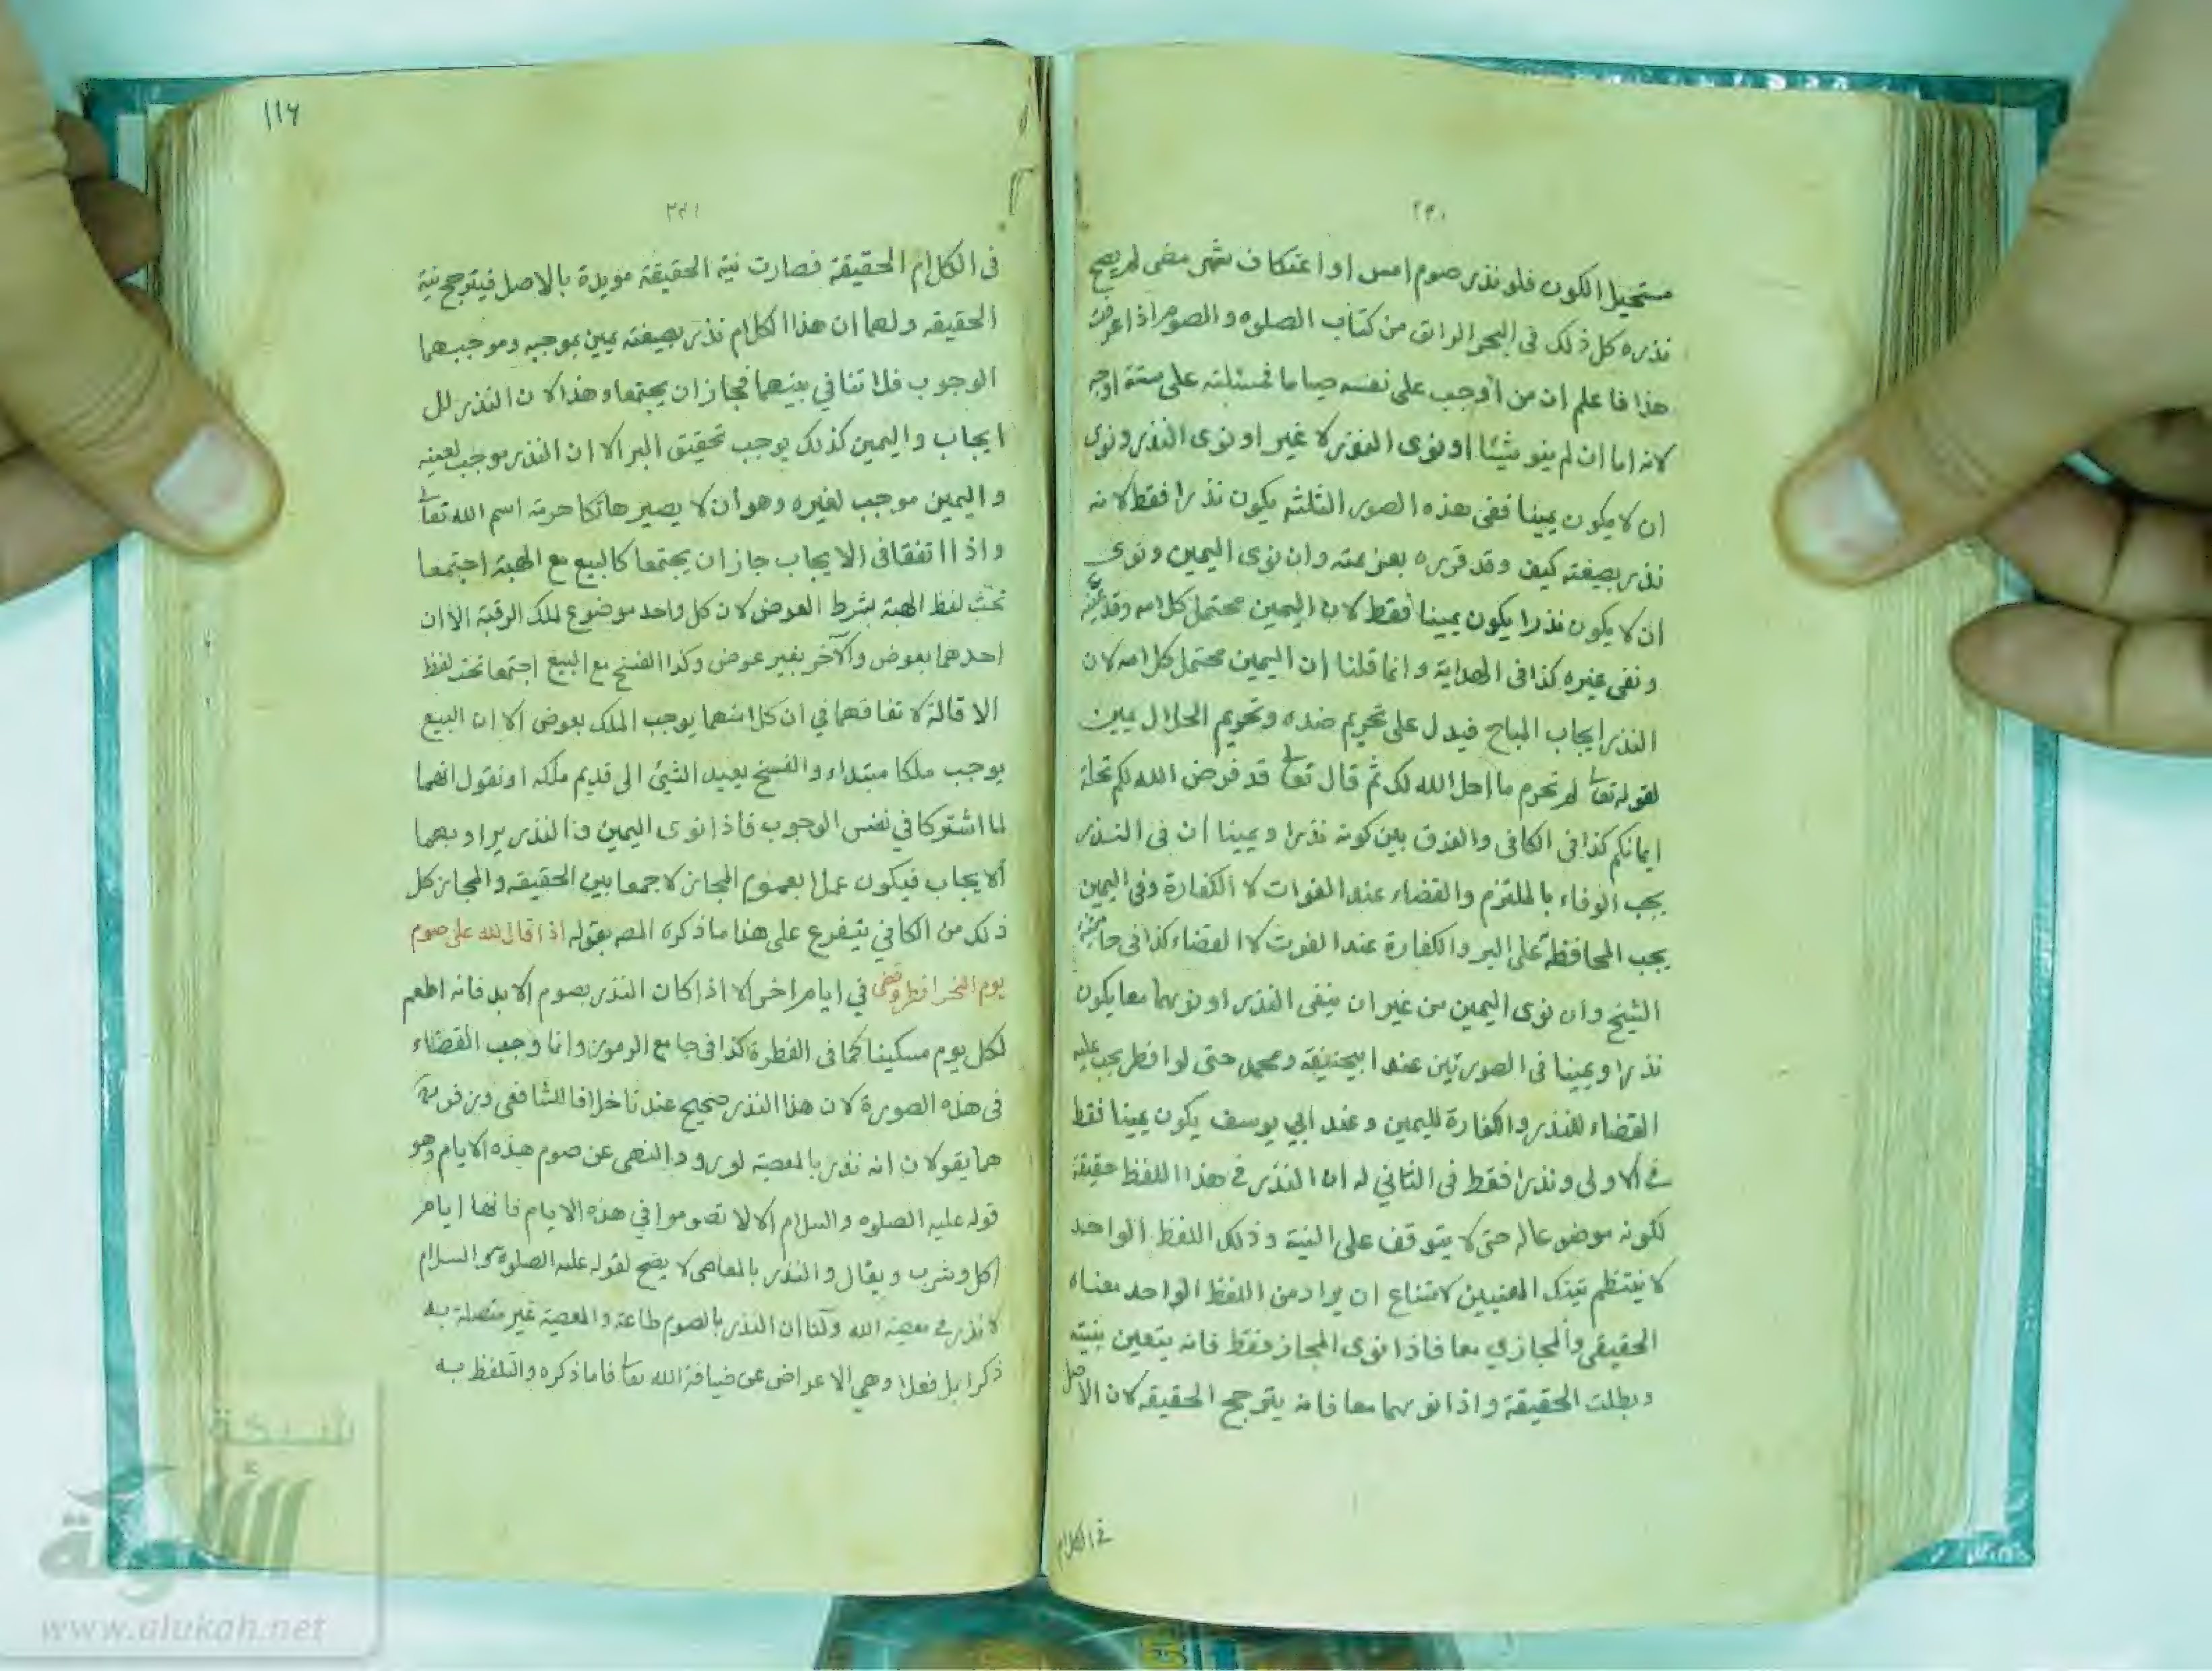 ٢٣٠
مستحيل الكون فلو نذر صوم امس او اعتكاف شهر مضى لم يصح
نذره كل ذلك فى البحر الرائق من كتاب الصلوه والصوم اذا عرفت
هذا فاعلم ان من أوجب على نفسه صياما فمسئلته على ستة اوجه
لانه اما ان لم ينو شيئا او نوى النذر لا غير او نوى النذر ونوى
ان لا يكون يمينا ففى هذه الصور الثلثه يكون نذرا فقط لانه
نذر بصيغته كيف وقد قرره بعزيمته وان نوى اليمين ونوى
ان لا يكون نذرا يكون يمينا فقط لان اليمين محتمل كلامه وقد عينه
ونفى غيره كذا فى الهداية وانما قلنا ان اليمين محتمل كلامه لان
النذر ايجاب المباح فيدل على تحريم ضده وتحريم الحلال يمين
لقوله تعا لم تحرم ما احل الله لك ثم قال تعا قد فرض الله لكم تحلة
ايمانكم كذا فى الكافى والفرق بين كونه نذرا ويمينا ان فى النذر
يجب الوفاء بالملتزم والقضاء عند الفوات لا الكفارة وفى اليمين
يجب المحافظة على البر والكفارة عند الفوت لا القضاء كذا فى حاشية
الشيخ وان نوى اليمين من غير ان ينفى النذر او نويهما معا يكون
نذرا ويمينا فى الصورتين عند ابيحنيفه ومحمد حتى لو افطر يجب عليه
القضاء للنذر والكفارة لليمين وعند ابي يوسف يكون يمينا فقط
فى الاولى ونذرا فقط فى الثاني له ان النذر فى هذا اللفظ حقيقة
لكونه موضوعا له حتى لا يتوقف على النية وذلك اللفظ الواحد
لا ينتظم تينك المعنيين لامتناع ان يراد من اللفظ الواحد معناه
الحقيقى والمجازي معا فاذا نوى المجاز فقط فانه يتعين بنيته
وبطلت الحقيقة واذا نويهما معا فانه يترجح الحقيقه لان الاصل
فى الكلام
١١٦
٢٣١
فى الكلام الحقيقة فصارت نية الحقيقة مويدة بالاصل فيترجح نية
الحقيقه ولهما ان هذا الكلام نذر بصيغته يمين بموجبه وموجبهما
الوجوب فلا تنافي بينهما فجاز ان يجتمعا وهذا لان النذر لل
ايجاب واليمين كذلك يوجب تحقيق البر الا ان النذر موجب لعينه
واليمين موجب لغيره وهو أن لا يصير هاتكا حرمة اسم الله تعا
واذا اتفقا فى الايجاب جاز ان يجتمعا كالبيع مع الهبة اجتمعا
تحت لفظ الهبة بشرط العوض لان كل واحد موضوع لملك الرقبة الا ان
احدهما بعوض والآخر بغير عوض وكذا الفسخ مع البيع اجتمعا تحت لفظ
الاقالة لاتفاقهما في ان كلا منهما يوجب الملك بعوض الا ان البيع
يوجب ملكا مبتداء والفسخ يعيد الشئ الى قديم ملكه او نقول انهما
لما اشتركا في نفس الوجوب فاذا نوى اليمين والنذر يراد بهما
ألايجاب فيكون عملا بعموم المجاز لا جمعا بين الحقيقه والمجاز كل
ذلك من الكافي تيفرع على هذا ما ذكره المصه بقوله اذا قال لله على صوم
يوم النحر افطر وقضى في ايام اخر الا اذا كان النذر بصوم الابد فانه اطعم
لكل يوم مسكينا كما فى الفطرة كذا فى جامع الرموز وانما وجب القضاء
فى هذه الصورة لان هذا النذر صحيح عندنا خلافا للشافعى وزفر
هما يقولان انه نذر بالمعصية لورود النهى عن صوم هذه الايام وهو
قوله عليه الصلوه والسلام الا لا تصوموا في هذه الايام فانها ايام
اكل وشرب ويقال والنذر بالمعاصى لا يصح لقوله عليه الصلوة والسلام
لا نذر فى معصية الله ولنا ان النذر بالصوم طاعة والمعصية غير متصلة به
ذكرا بل فعلا وهي الاعراض عن ضيافة الله تعا فاما ذكره والتلفظ به
شبكة
الألوكة
www.alukah.net